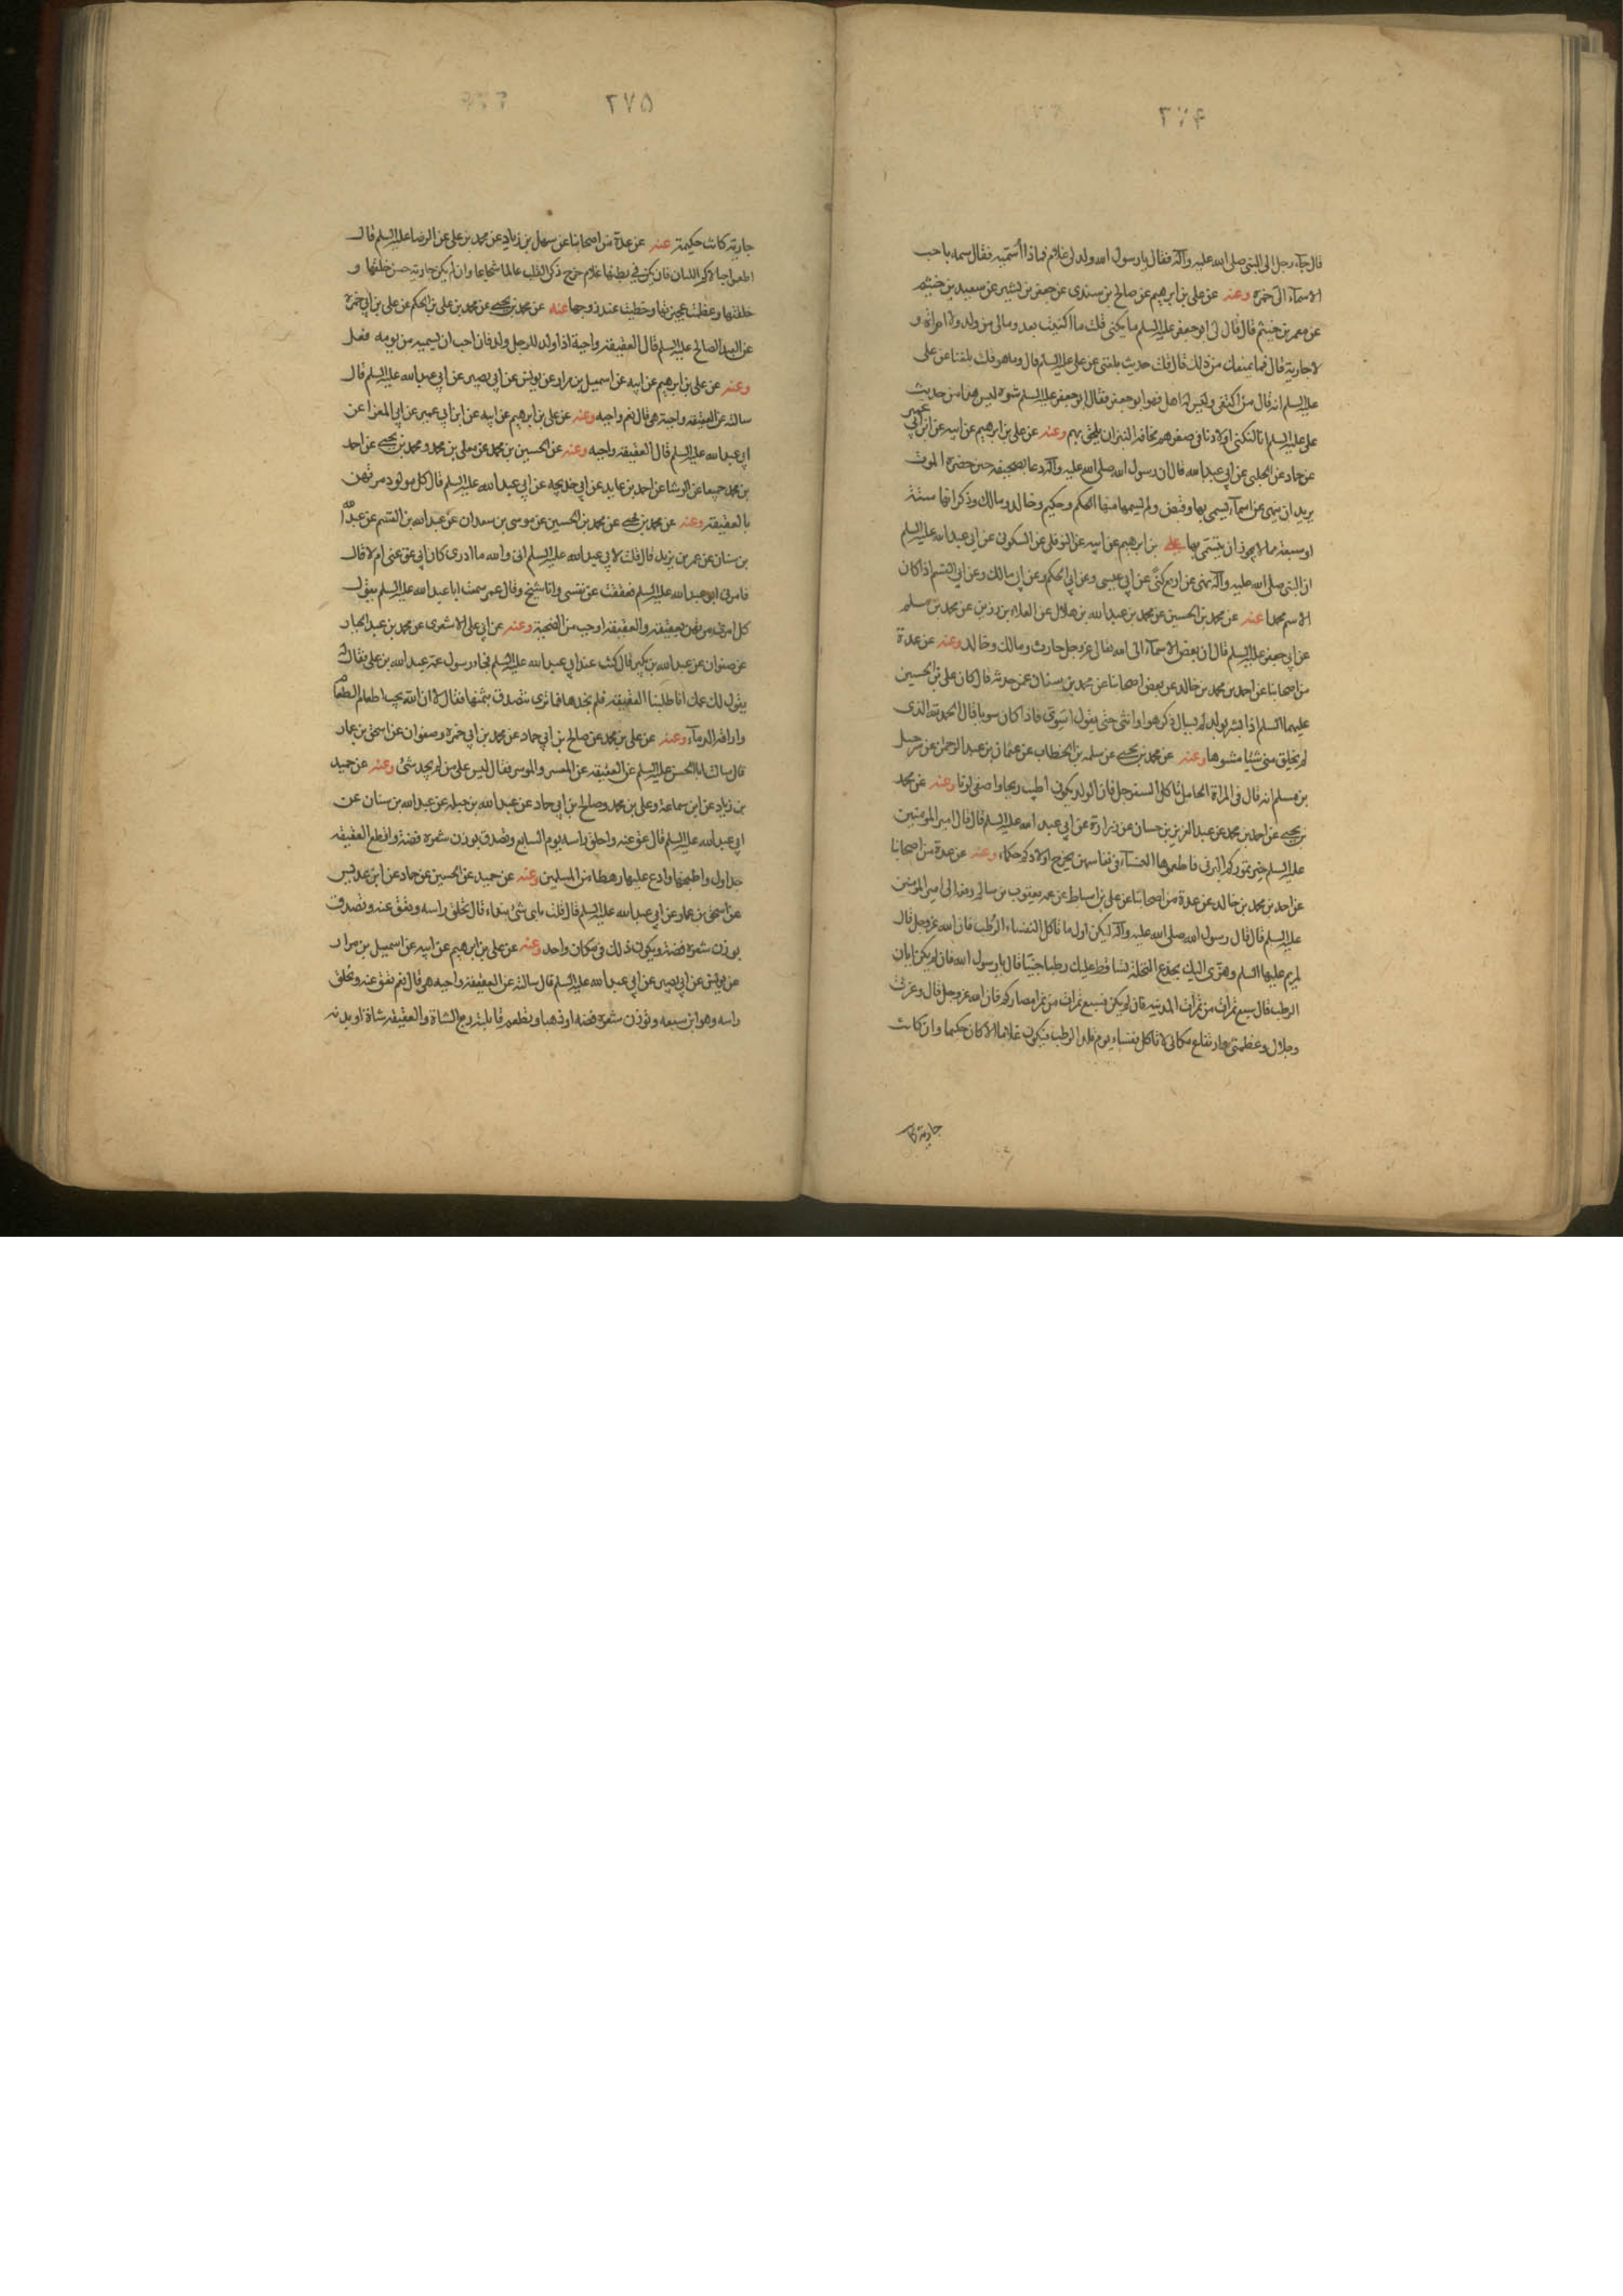 ٢٧٤
قال جاء رجل الى النبى صلى الله عليه وآله فقال يا رسول الله ولد لى غلام فماذا أسميه فقال سمه باحب
الاسمآء الىّ حمزه وعنه عن على بن ابرهيم عن صالح بن سندى عن جعفر بن بشير عن سعيد بن خثيم
عن معمر بن خثيم قال قال لى ابو جعفر عليه السلم ما تكنى قلت ما اكتنيت بعد ومالى من ولد ولا امراة و
لا جارية قال فما يمنعك من ذلك قال قلت حديث بلغنى عن على عليه السلم قال وما هو قلت بلغنا عن على
عليه السلم انه قال من اكتنى وليس له اهل فهو ابو جعر فقال ابو جعفر عليه السلم شوه ليس هذا من حديث
على عليه السلم انا لنكنى اولادنا فى صغرهم مخافة النبز ان يلحق بهم وعنه عن على بن ابرهيم عن ابيه عن ابن ابى عمير
عن حماد عن الحلبى عن ابى عبد الله قال ان رسول الله صلى الله عليه وآله دعا بصحيفه حين حضره الموت
يريد ان ينهى عن اسمآء يسمى بها وقبض ولم يسمها منها الحكم وحكيم وخالد ومالك وذكر انها ستة
او سبعة مما لا يجوز ان يتسمى بها على بن ابرهيم عن ابيه عن النوفلى عن السكونى عن ابى عبد الله عليه السلم
ان النبى صلى الله عليه وآله نهى عن اربع كنى عن ابى عيسى وعن ابى الحكم وعن ابى مالك وعن ابى القسم اذا كان
الاسم محمدا عنه عن محمد بن الحسين عن محمد بن عبد الله بن هلال عن العلاء بن رزين عن محمد بن مسلم
عن ابى جعفر عليه السلم قال ان ابغض الاسمآء الى الله تعالى عز وجل حارث ومالك وخالد وعنه عن عدة
من اصحابنا عن احمد بن محمد بن خالد عن بعض اصحابنا عن محمد بن سنان عمن حدثه قال كان على بن الحسين
عليهما السلم اذا بشر بولد لم يسال ذكر هو او انثى حتى يقول اسَوىّ فاذا كان سويا قال الحمد لله الذى
لم يخلق منى شيئا مشوها وعنه عن محمد بن يحيى عن سلمة بن الخطاب عن عثمان بن عبد الرحمن عن شرحبيل
بن مسلم انه قال فى المراة الحامل تاكل السفرجل فان الولد يكون اطيب ريحا واصفى لونا وعنه عن محمد
بن يحيى عن احمد بن محمد عن عبد العزيز بن حسان عن زرارة عن ابى عبد الله عليه السلم قال قال امير المؤمنين
عليه السلم خير تموركم البرنى فاطعموها النسآء فى نفاسهن يخرج اولادكم حكماء وعنه عن عدة من اصحابنا
عن احمد بن محمد بن خالد عن عدة من اصحابنا عن على بن اسباط عن عمه يعقوب بن سالم رفعه الى امير المؤمنين
عليه السلم قال قال رسول الله صلى الله عليه وآله ليكن اول ما تاكل النفساء الرُطب فان الله عز وجل قال
لمريم عليها السلم وهزى اليك بجذع النخلة تساقط عليك رطبا جنيا قال يا رسول الله فان لم يكن ابان
الرطب قال سبع تمرات من تمرات المدينه فان لم يكن فسبع تمرات من تمر امصاركم فان الله عز وجل قال وعزتى
وجلالى وعظمتى وارتفاع مكانى لا تاكل نفساء يوم تلد الرطب فيكون غلاما الا كان حكيما وان كانت
جارية كا
٢٧٥
جارية كانت حكيمة عنه عن عدة من اصحابنا عن سهل بن زياد عن محمد بن على عن الرضا عليه السلم قال
اطعموا حبالاكم اللبان فان يكن فى بطنها غلام خرج ذكى القلب عالما شجاعا وان لم يكن جارية حسن خلقها و
خلقتها وعظمت عجيزتها وحظيت عند زوجها عنه عن محمد بن يحيى عن محمد بن على بن الحكم عن على بن ابى حمزه
عن العبد الصالح عليه السلم قال العقيقة واجبة اذا ولد للرجل ولد فان احب ان يسميه من يومه فعل
وعنه عن على بن ابرهيم عن ابيه عن اسمعيل بن مرار عن يونس عن ابى بصير عن ابى عبد الله عليه السلم قال
سالته عن العقيقه واجبة هى قال نعم واجبه وعنه عن على بن ابرهيم عن ابيه عن ابن ابى عمير عن ابى المغرا عن
ابى عبد الله عليه السلم قال العقيقه واجبه وعنه عن الحسين بن محمد عن معلى بن محمد ومحمد بن يحيى عن احمد
بن محمد جميعا عن الوشا عن احمد بن عايد عن ابى خديجه عن ابى عبد الله عليه السلم قال كل مولود مرتهن
بالعقيقه وعنه عن محمد بن يحيى عن محمد بن الحسين عن موسى بن سعدان عن عبد الله بن القسم عن عبد الله
بن سنان عن عمر بن يزيد قال قلت لابى عبد الله عليه السلم انى والله ما ادرى كان ابى عق عنى ام لا قال
فامرنى ابو عبد الله عليه السلم فعققت عن نفسى وانا شيخ وقال عمر سمعت ابا عبد الله عليه السلم يقول
كل امرئ مرتهن بعقيقته والعقيقة اوجب من الضحية وعنه عن ابى على الاشعرى عن محمد بن عبد الجبار
عن صفوان عن عبد الله بن بكير قال كنت عند ابى عبد الله عليه السلم فجاء رسول عمه عبد الله بن على فقال له
يقول لك عمك انا طلبنا العقيقه فلم نجدها فما ترى نتصدق بثمنها فقال لا ان الله يحب اطعام الطعام
واراقة الدمآء وعنه عن على بن محمد عن صالح بن ابى حماد عن محمد بن ابى حمزه وصفوان عن اسحق بن عمار
قال سالت ابا الحسن عليه السلم عن العقيقه عن المعسر والموسر فقال ليس على من لم يجد شئ وعنه عن حميد
بن زياد عن ابن سماعة وعلى بن محمد وصالح بن ابى حماد عن عبد الله بن جبله عن عبد الله بن سنان عن
ابى عبد الله عليه السلم قال عق عنه واحلق راسه يوم السابع وتصدق بوزن شعره فضة واقطع العقيقه
جداول واطبخها وادع عليها رهطا من المسلمين وعنه عن حميد عن الحسين عن حماد عن ابن عديس
عن اسحق بن عمار عن ابى عبد الله عليه السلم قال قلت باى شئ نبداء قال تحلق راسه وتعق عنه وتصدق
بوزن شعره فضة ويكون ذلك فى مكان واحد وعنه عن على بن ابرهيم عن ابيه عن اسمعيل بن مرار
عن يونس عن ابى بصير عن ابى عبد الله عليه السلم قال سالته عن العقيقة واجبه هى قال نعم تعق عنه وتحلق
راسه وهو ابن سبعه وتوزن شعره فضه او ذهبا وتطعم قابلته ربع الشاة والعقيقه شاة او بدنه